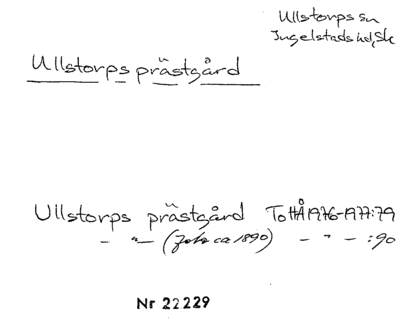 Ullstorps sn
Ingelstads hd, Sk
Ullstorps prästgård
Ullstorps prästgård ToHÅ 1976-1977:79
- " - (foto ca 1890) - " - :90
Nr 22229